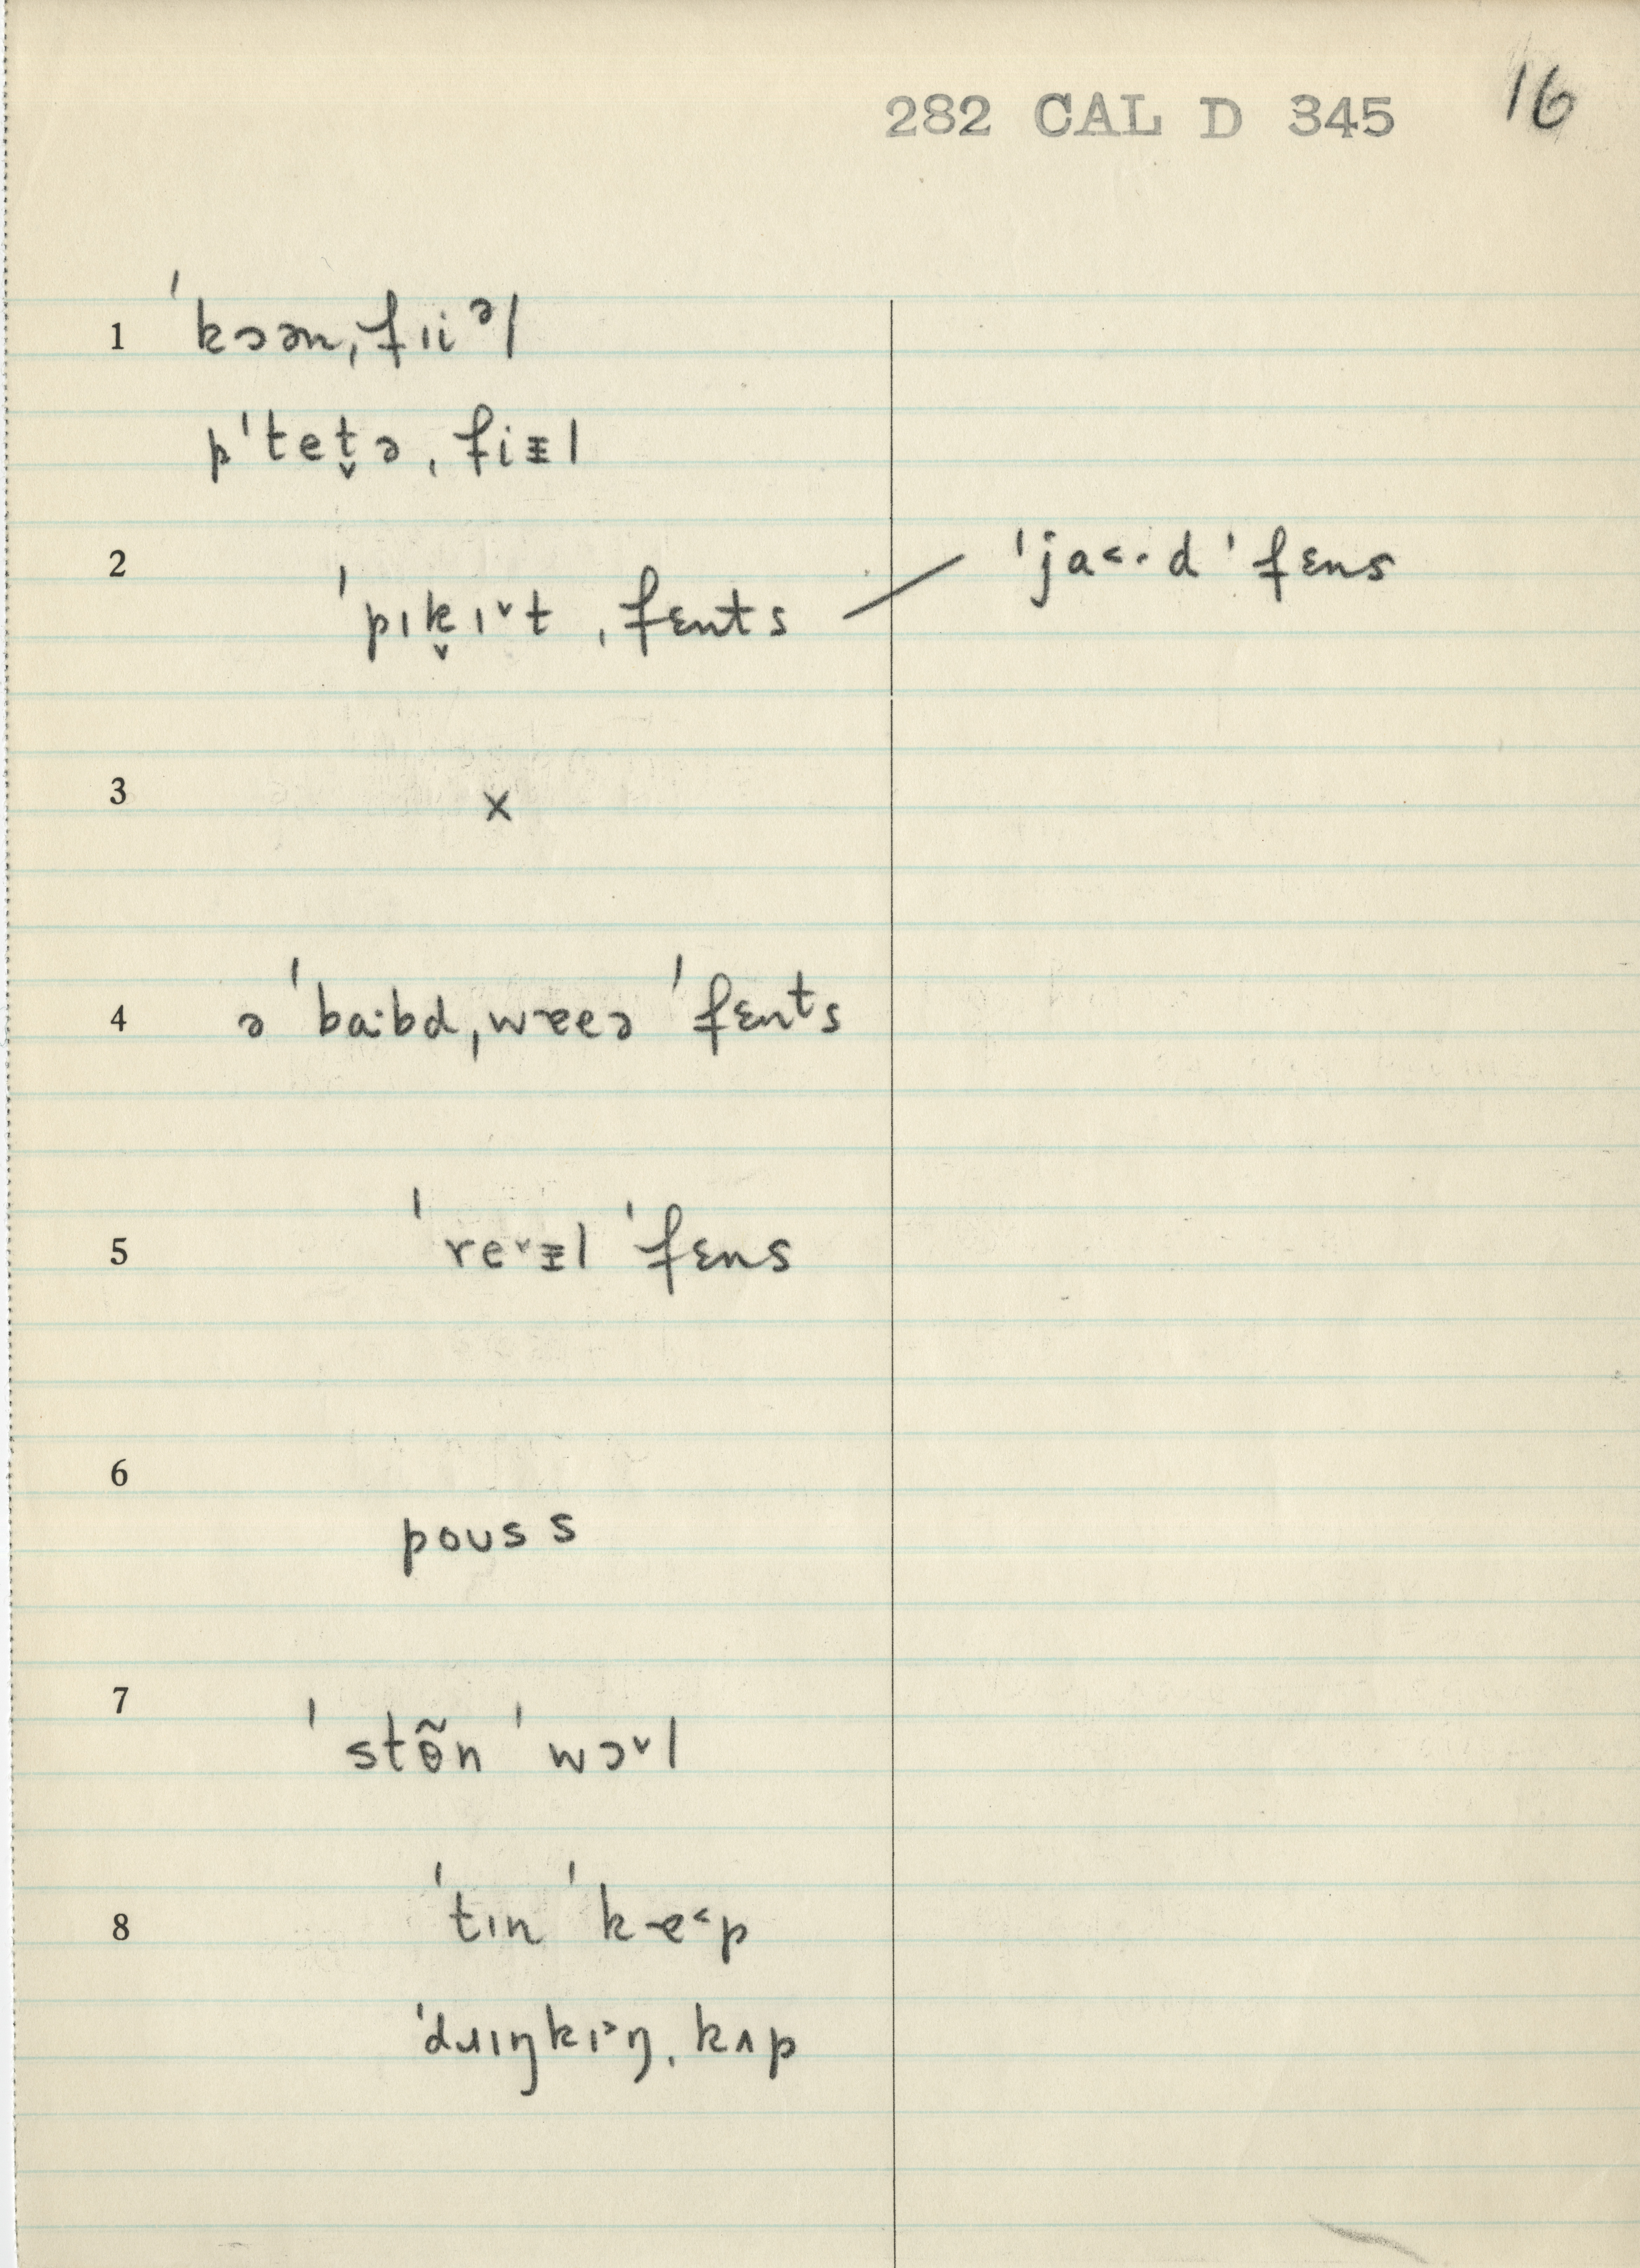 282 CAL D 345 16
1 ˈkɔən ˌfɪiᵊl
pˈtet̬ə ˌfiᵻl
2 ˈpɪk̬ɪ˅t ˌfɛnts — ˈja˂·d ˈfɛns
3 x
4 ə ˈba·bd ˌwæeə ˈfɛnᵗs
5 ˈre˅ᵻl ˈfɛns
6 poʊs s
7 ˈstɵ̃n ˈwɔ˅l
8 ˈtɪn ˈkɐ˂p
ˈdɹɪŋkɪ˃ŋ ˌkʌp